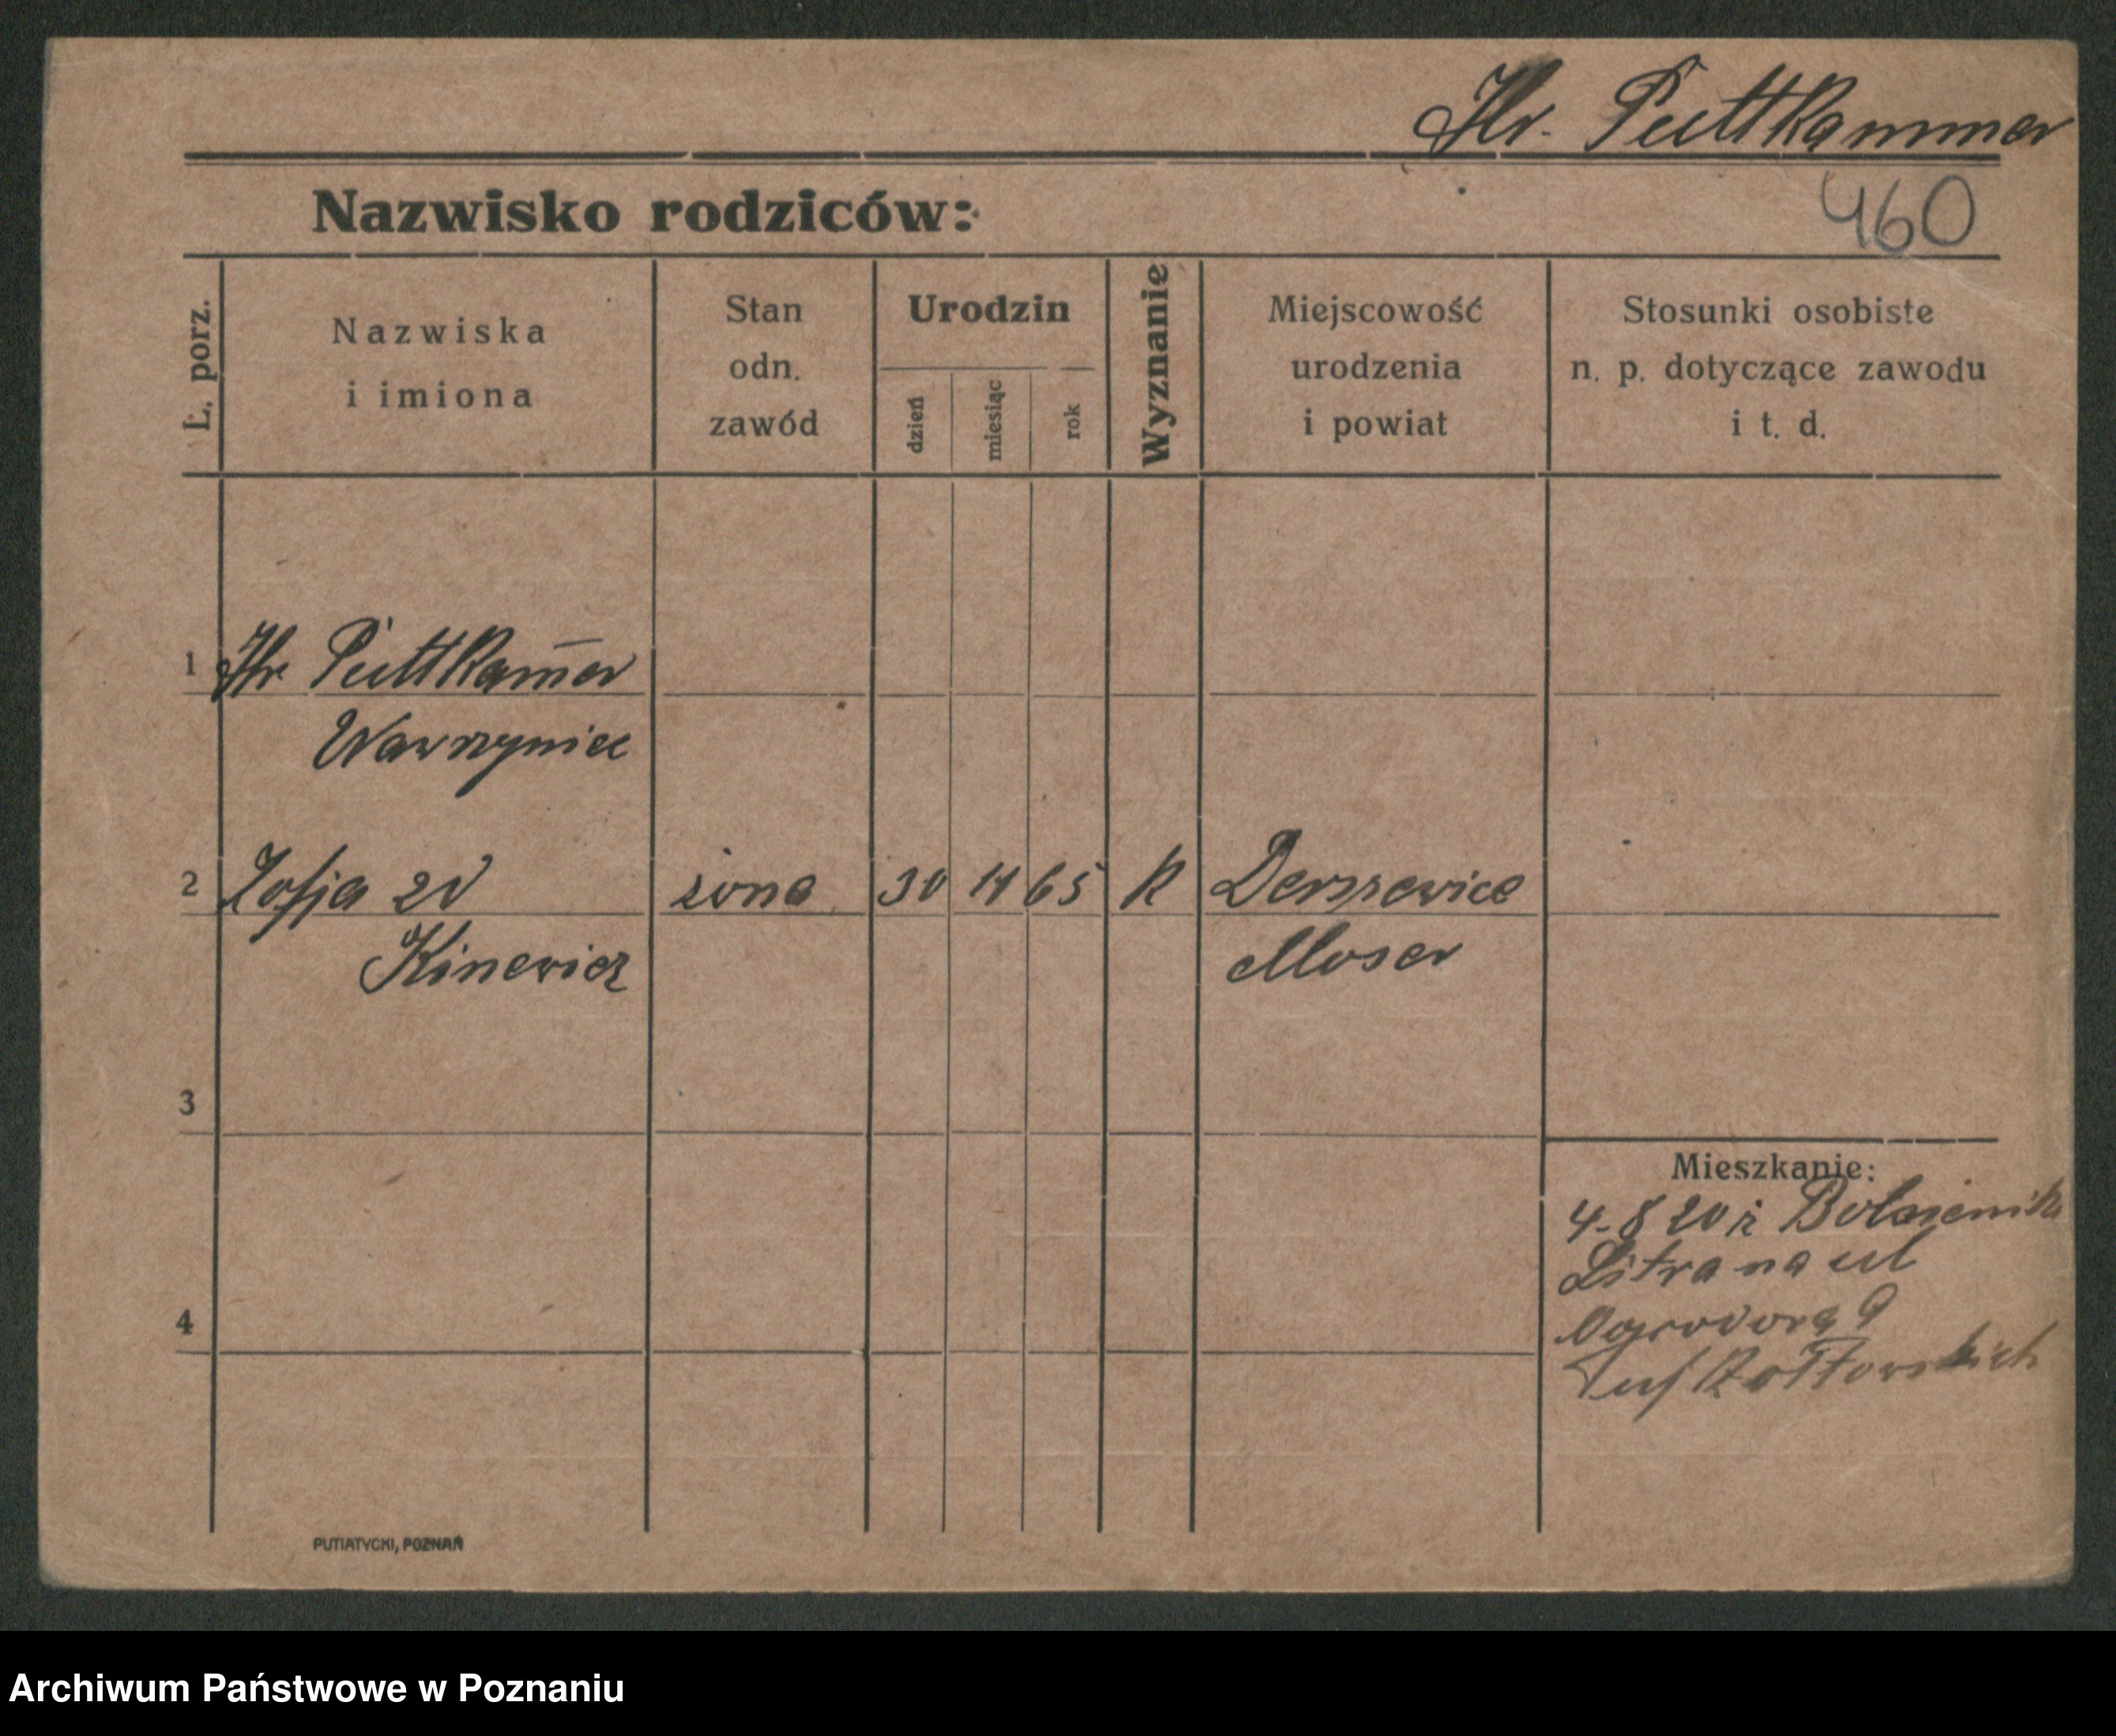 Hr. Puttkammer
460
Nazwisko rodziców:
L. porz.
Nazwiska
i imiona
Stan
odn.
zawód
Urodzin
dzień
miesiąc
rok
Wyznanie
Miejscowość
urodzenia
i powiat
Stosunki osobiste
n. p. dotyczące zawodu
i t. d.
1 Hr Puttkam̄er
Wawrzyniec
2 Zofja zd żona 30 11 65 K Derszewice
Kinewicz Moser
3
4
Mieszkanie:
4-8 20 z
na ul
Ogrodową 9
PUTIATYCKI, POZNAŃ
Archiwum Państwowe w Poznaniu